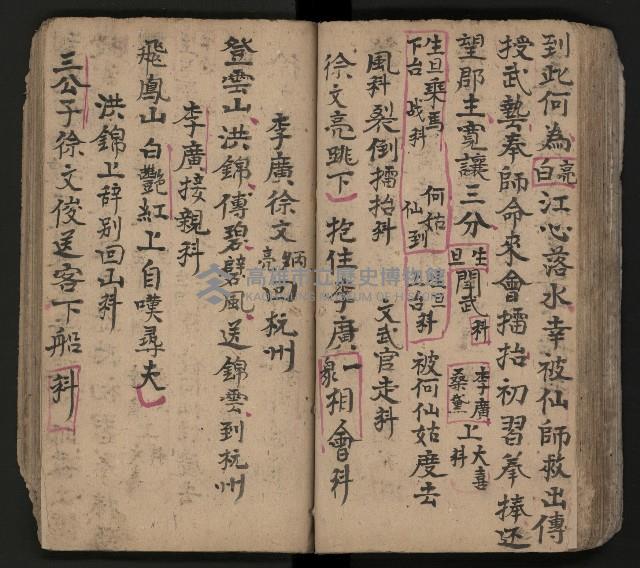 到此何為亮白江心落水幸被仙師救出傳
授武藝奉師命來會擂抬初習拳捧还
望郡主寬讓三分生旦開武科李廣桑黛上大喜科
生旦乘馬下台战科何姑仙到生旦台科被何仙姑度去
風科裂倒擂抬科文武官走科
徐文亮跳下抱住李廣一衆相會科
李廣徐文炳亮回杭州
登雲山洪錦傳碧譬風送錦雲到杭州
李廣接親科
飛鳳山白艷紅上自嘆尋夫
洪錦上辞别回山科
三公子徐文俊送客下船科
高雄市立歷史博物館
KAOHSIUNG MUSEUM OF HISTORY